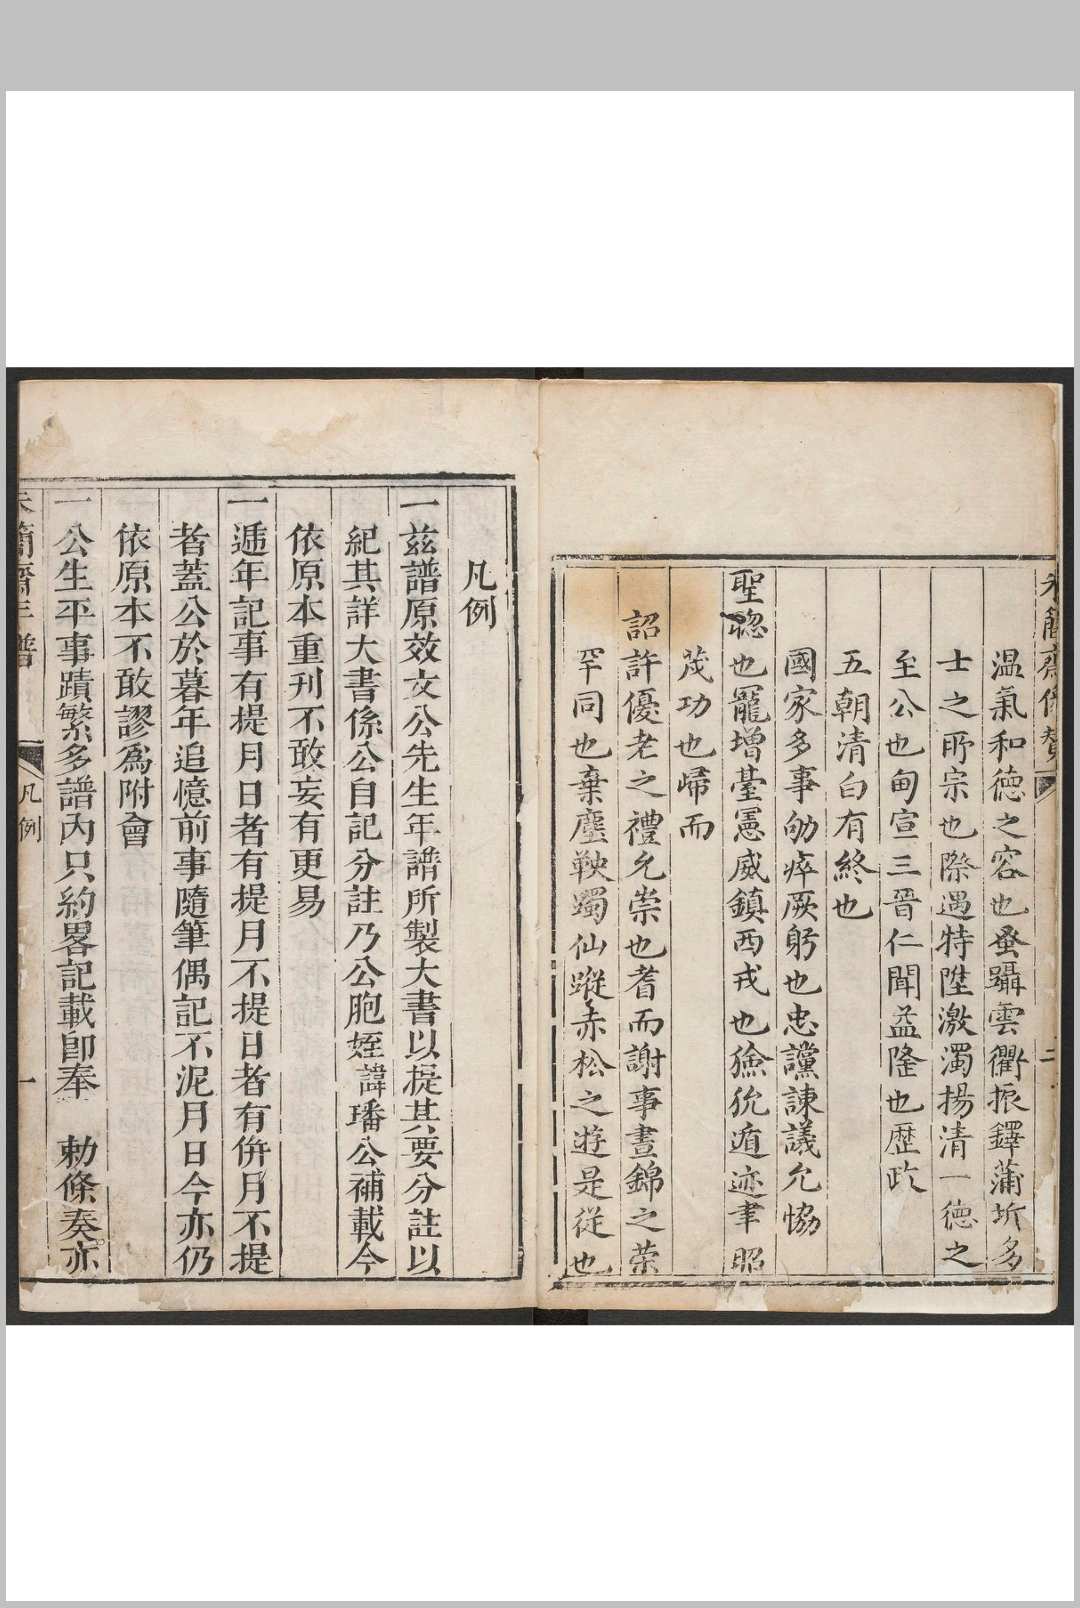 齋像贊
二
溫氣和德之容也蚤躡雲衢振鐸蒲圻多
士之所宗也際遇特陞激濁揚清一德之
至公也甸宣三晉仁聞益隆也歷政
五朝清白有終也
國家多事劬瘁厥躬也忠讜諫議允恊
聖聰也寵增臺憲威鎮西戎也獫狁遁迹聿昭
茂功也歸而
詔許優老之禮允崇也耆而謝事晝錦之荣
罕同也棄塵鞅躅仙蹤赤松之遊是從也
凡例
一茲譜原效文公先生年譜所製大書以提其要分註以
紀其詳大書係公自記分註乃公胞姪諱璠公補載今
依原本重刊不敢妄有更易
一遞年記事有提月日者有提月不提日者有併月不提
者蓋公於暮年追憶前事隨筆偶記不泥月日今亦仍
依原本不敢謬為附會
一公生平事蹟繁多譜內只約畧記載卽奉 勅條奏亦
簡齋年譜
凡例
一